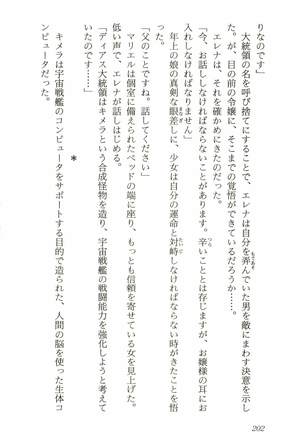 りなのです」
　大統領の名を呼び捨てにすることで、エレナは自分を弄んでいた男を敵にまわす決意を示し
た。が、目の前の令嬢に、そこまでの覚悟ができているだろうか……。
　エレナは、それを確かめにきたのだった。
「今、お話ししなければならないことがあります。辛いこととは存じますが、お嬢様の耳にお
入れしなければなりません」
　年上の娘の真剣な眼差しに、少女は自分の運命と対峙しなければならない時がきたことを悟
った。
「父のことですね。話してください」
　マリエルは個室に備えられたベッドの端に座り、もっとも信頼を寄せている女を見上げた。
低い声で、エレナが話しはじめる。
「ディアス大統領はキメラという合成怪物を造り、宇宙戦艦の戦闘能力を強化しようと考えて
いたのです……」
＊
　キメラは宇宙戦艦のコンピュータをサポートする目的で造られた、人間の脳を使った生体コ
ンピュータだった。
202